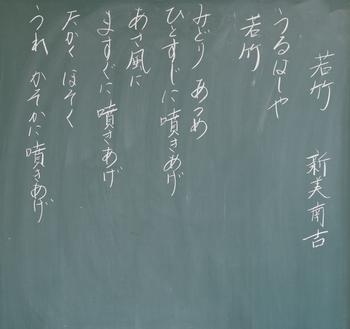 若竹 新美南吉
うるはしや
若竹
みどり あつめ
ひとすじに噴きあげ
あさ風に
ますぐに噴きあげ
たかく ほそく
うれ かそかに噴きあげ